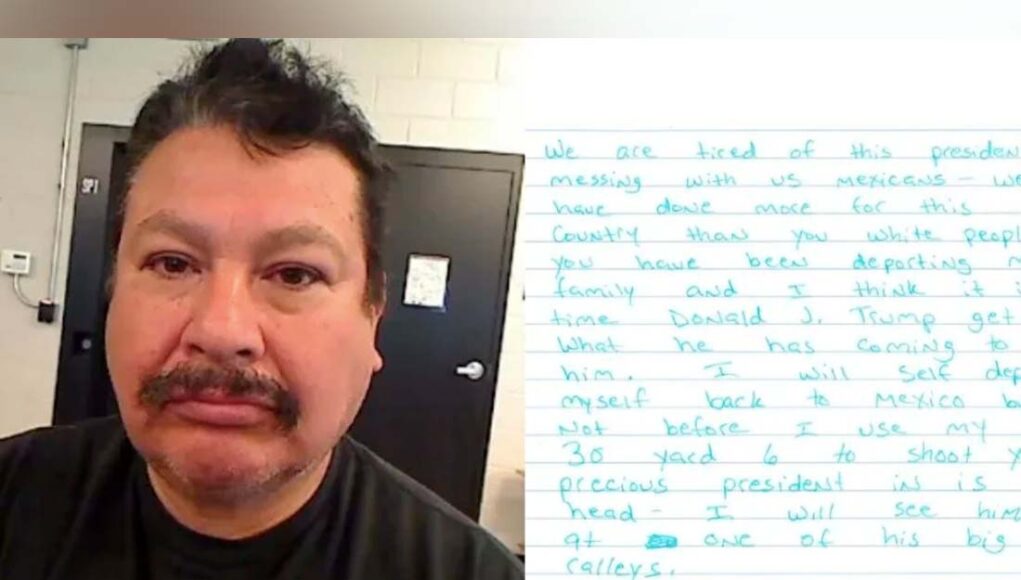 SPI
We are tired of this presiden
messing with us mexicans - we
have done more for this
country than you white peopl
you have been deporting m
family and I think it i
time Donald J. Trump get
what he has coming to
him. I will self dep
myself back to mexico b
not before I use my
30 yard 6 to shoot y
precious president in is
head - I will see him
at one of his big
ralleys.